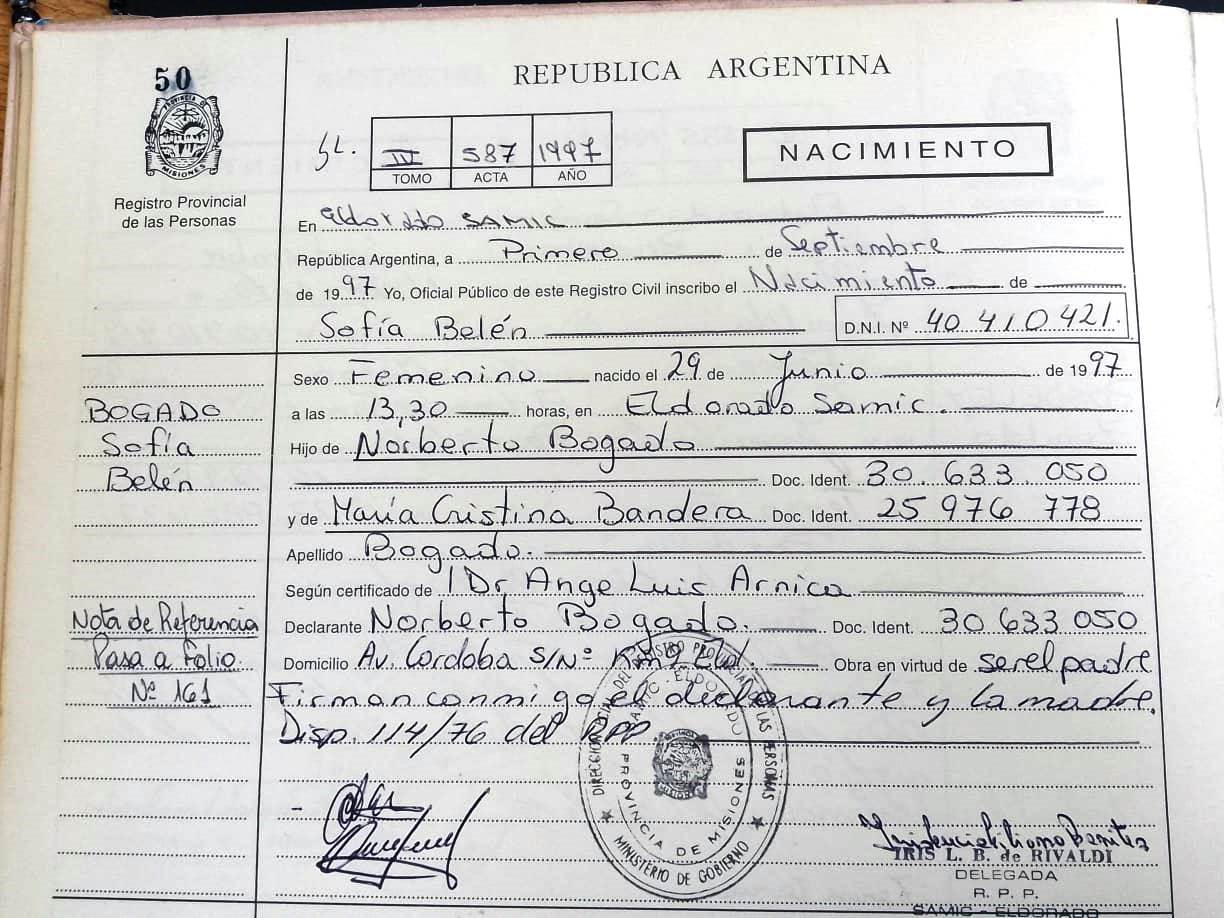 50
REPUBLICA ARGENTINA
PROVINCIA DE MISIONES
Registro Provincial
de las Personas
IV 587 1997
TOMO ACTA AÑO
NACIMIENTO
En Eldorado SAMIC
República Argentina, a Primero de Septiembre
de 1997 Yo, Oficial Público de este Registro Civil inscribo el Nacimiento de
Sofía Belén D.N.I. Nº 40 410 421.
Sexo Femenino nacido el 29 de Junio de 1997
BOGADO
Sofía
Belén
a las 13,30 horas, en Eldorado Samic.
Hijo de Norberto Bogado
Doc. Ident. 30.633.050
y de María Cristina Bandera Doc. Ident. 25 976 778
Apellido Bogado.
Según certificado de l Dr Ange Luis Arnica
Nota de Referencia
Pasa a Folio
Nº 161
Declarante Norberto Bogado. Doc. Ident. 30 633 050
Domicilio Av. Cordoba S/Nº Obra en virtud de ser el padre
Firman conmigo el declarante y la madre.
Disp. 114/76 del RPP
DIRECCION GRAL DEL REGISTRO PROVINCIAL DE LAS PERSONAS
SAMIC - ELDORADO
PROVINCIA DE MISIONES
MINISTERIO DE GOBIERNO
IRIS L. B. de RIVALDI
DELEGADA
R. P. P.
SAMIC - ELDORADO